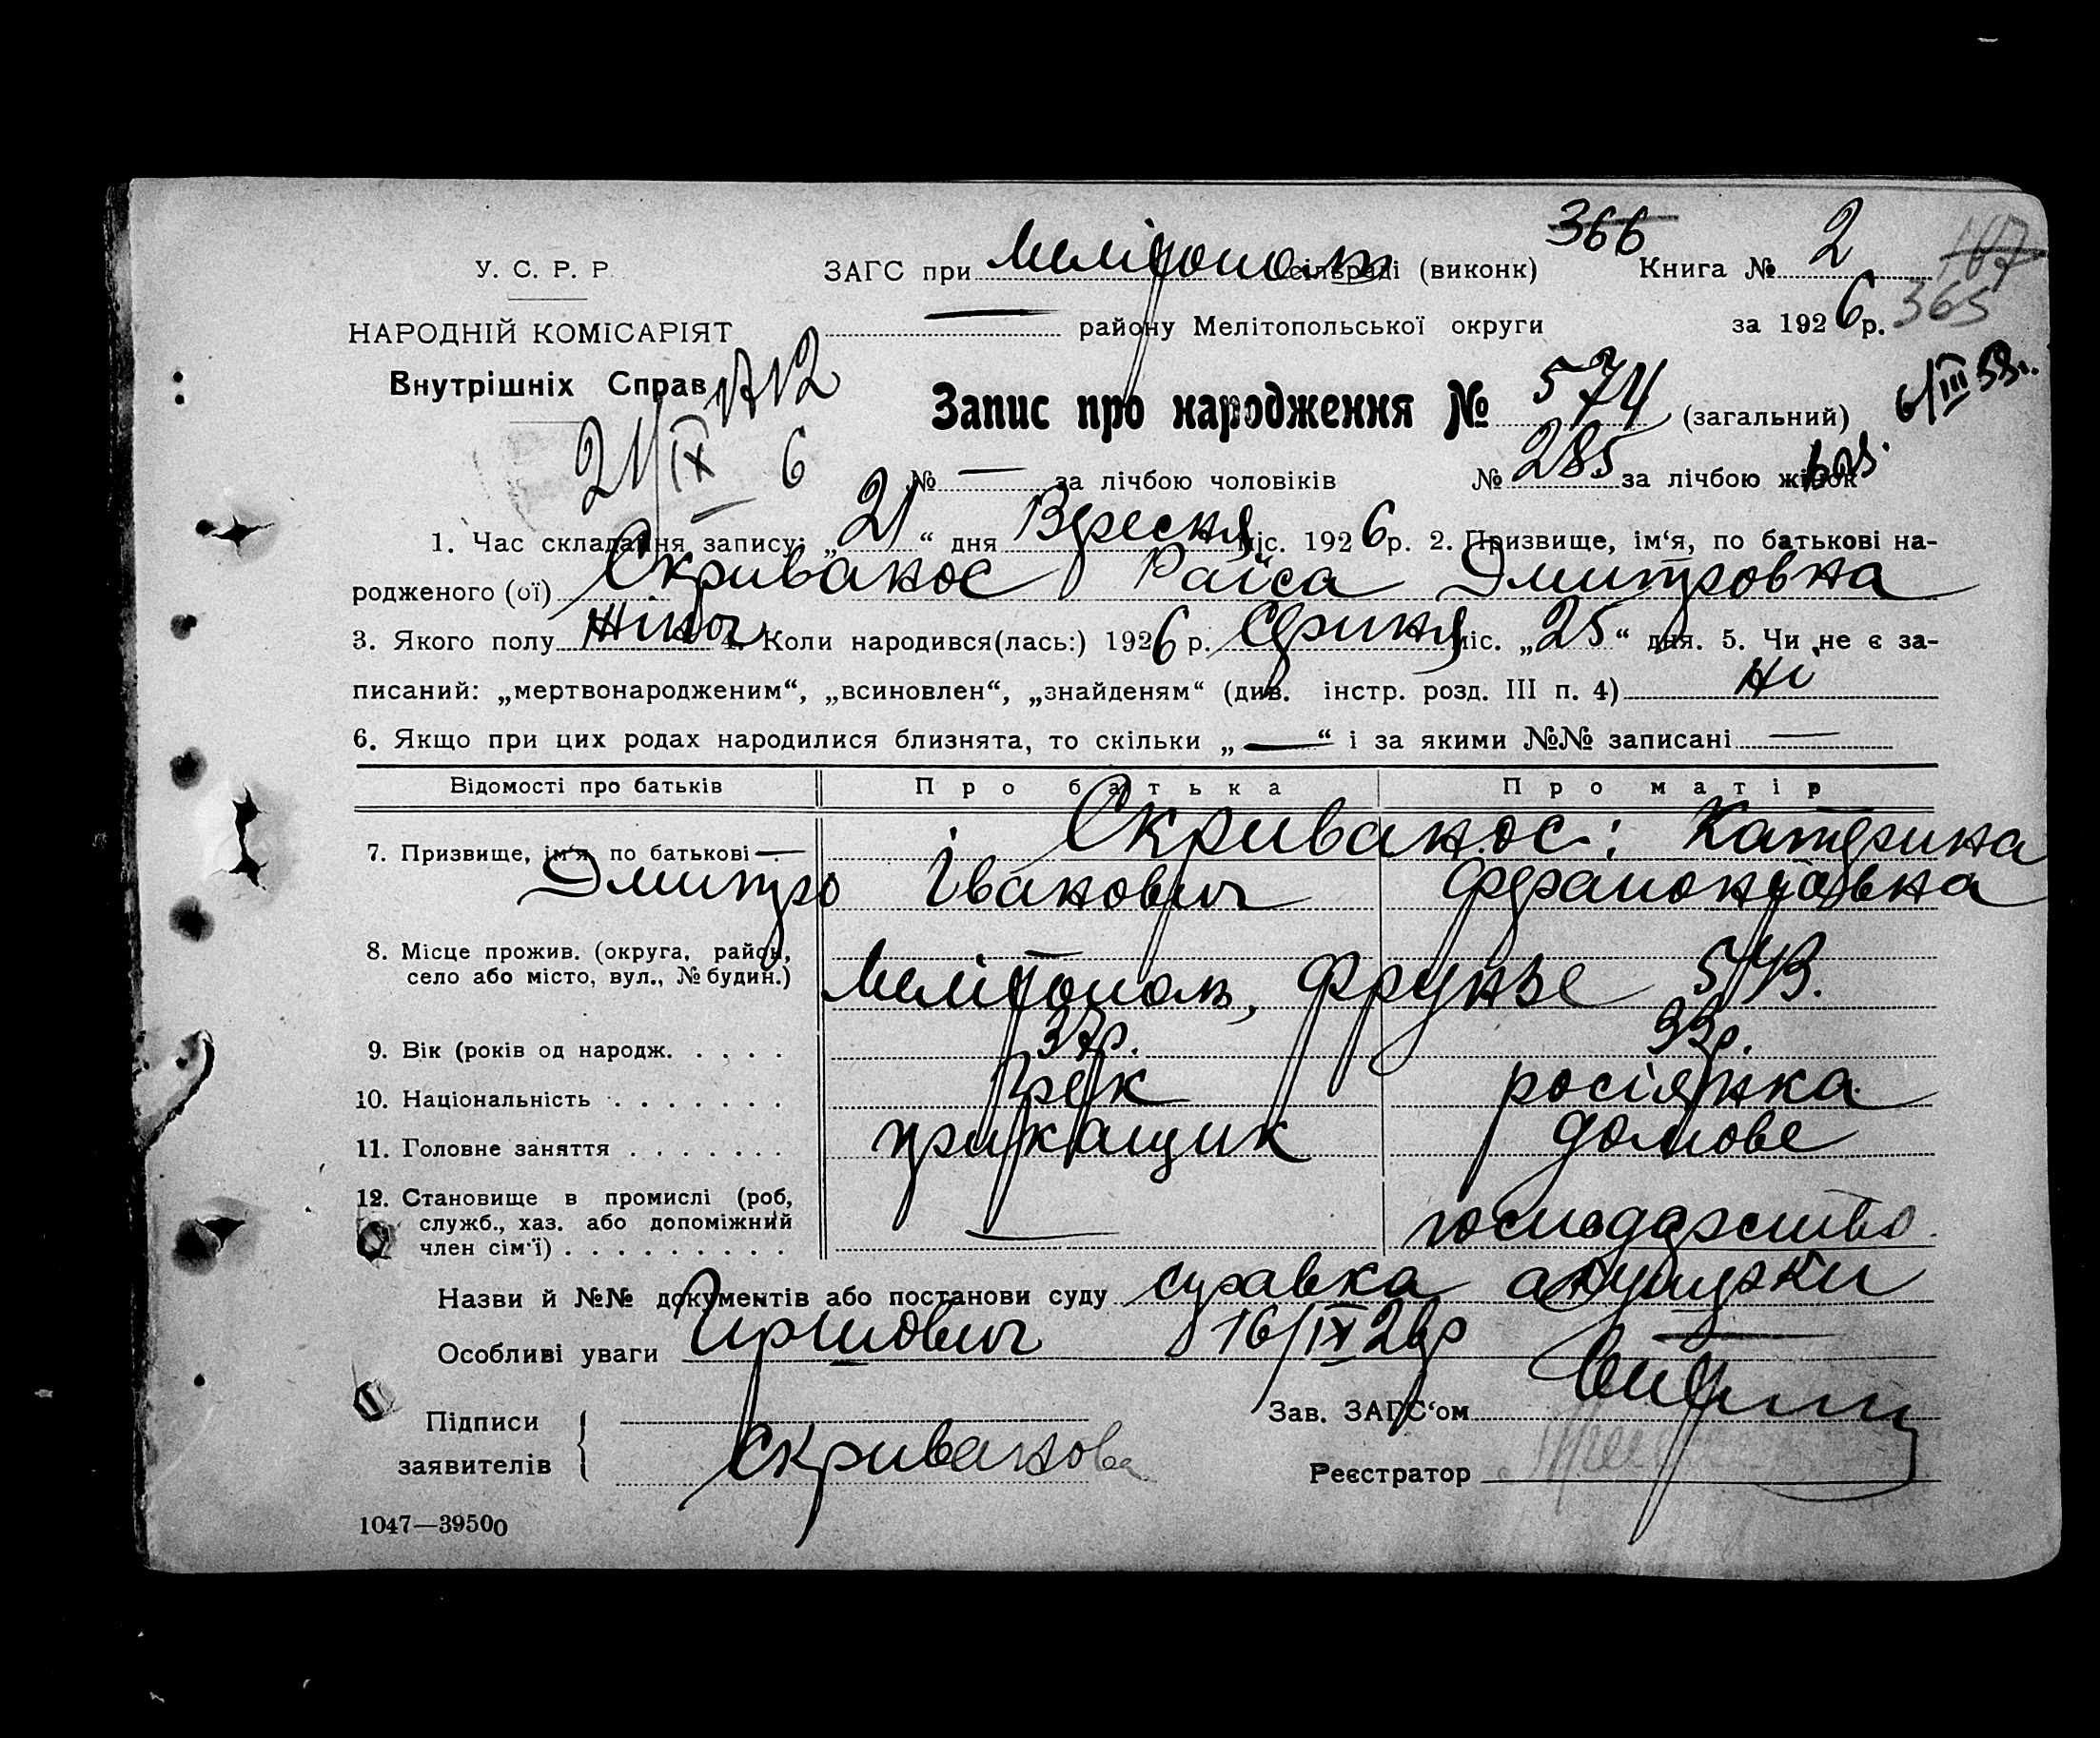 366
У. С. Р. Р.
ЗАГС при Мелітополь сільраді (виконк)
Книга № 2
107
НАРОДНІЙ КОМІСАРІЯТ
— району Мелітопольської округи
за 1926 р.
365
Внутрішніх Справ
6/III 53г.
Запис про народження № 574 (загальний)
21/IX 6
№ — за лічбою чоловіків № 285 за лічбою жінок
1. Час складання запису: „21“ дня Вересня міс. 1926 р. 2. Призвище, ім‘я, по батькові на-
родженого (ої) Скриванос Раїса Дмитровна
3. Якого полу жіноч 4. Коли народився(лась:) 1926 р. Серпня міс. „25“ дня. 5. Чи не є за-
писаний: „мертвонародженим“, „всиновлен“, „знайденям“ (див. інстр. розд. III п. 4) ні
6. Якщо при цих родах народилися близнята, то скільки „—“ і за якими №№ записані —
Відомості про батьків Про батька Про матір
Скриванос: Катерина
7. Призвище, ім‘я, по батькові —
Дмитро Іванович Ферапонтовна
8. Місце прожив. (округа, район,
село або місто, вул., № будин.)
Мелітополь, Фрунзе
9. Вік (років од народж. . . . . 37р. 33р.
10. Національність . . . . . . . Грек росіянка
11. Головне заняття . . . . . . . прикащик домове
12. Становище в промислі (роб,
служб., хаз. або допоміжний
член сім‘ї) . . . . . . . . . — господарство
Назви й №№ документів або постанови суду справка акушерки
Особливі уваги 16/IX 26р
Підписи
заявителів
Скриванова
Зав. ЗАГС‘ом
Реєстратор
1047—39500